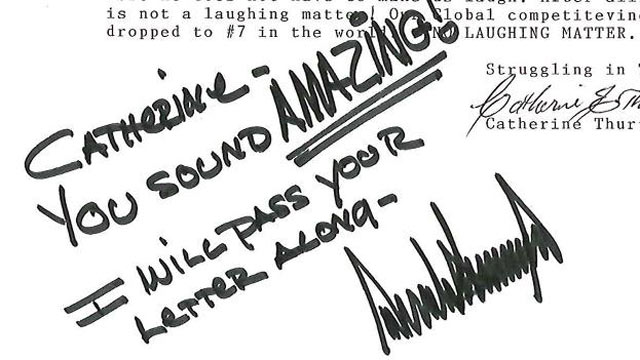 is not a laughing matter! Our Global competitevin
dropped to #7 in the world. NO LAUGHING MATTER.
Struggling in
Catherine Thur
CATHERINE-
YOU SOUND AMAZING!
I WILL PASS YOUR
LETTER ALONG-